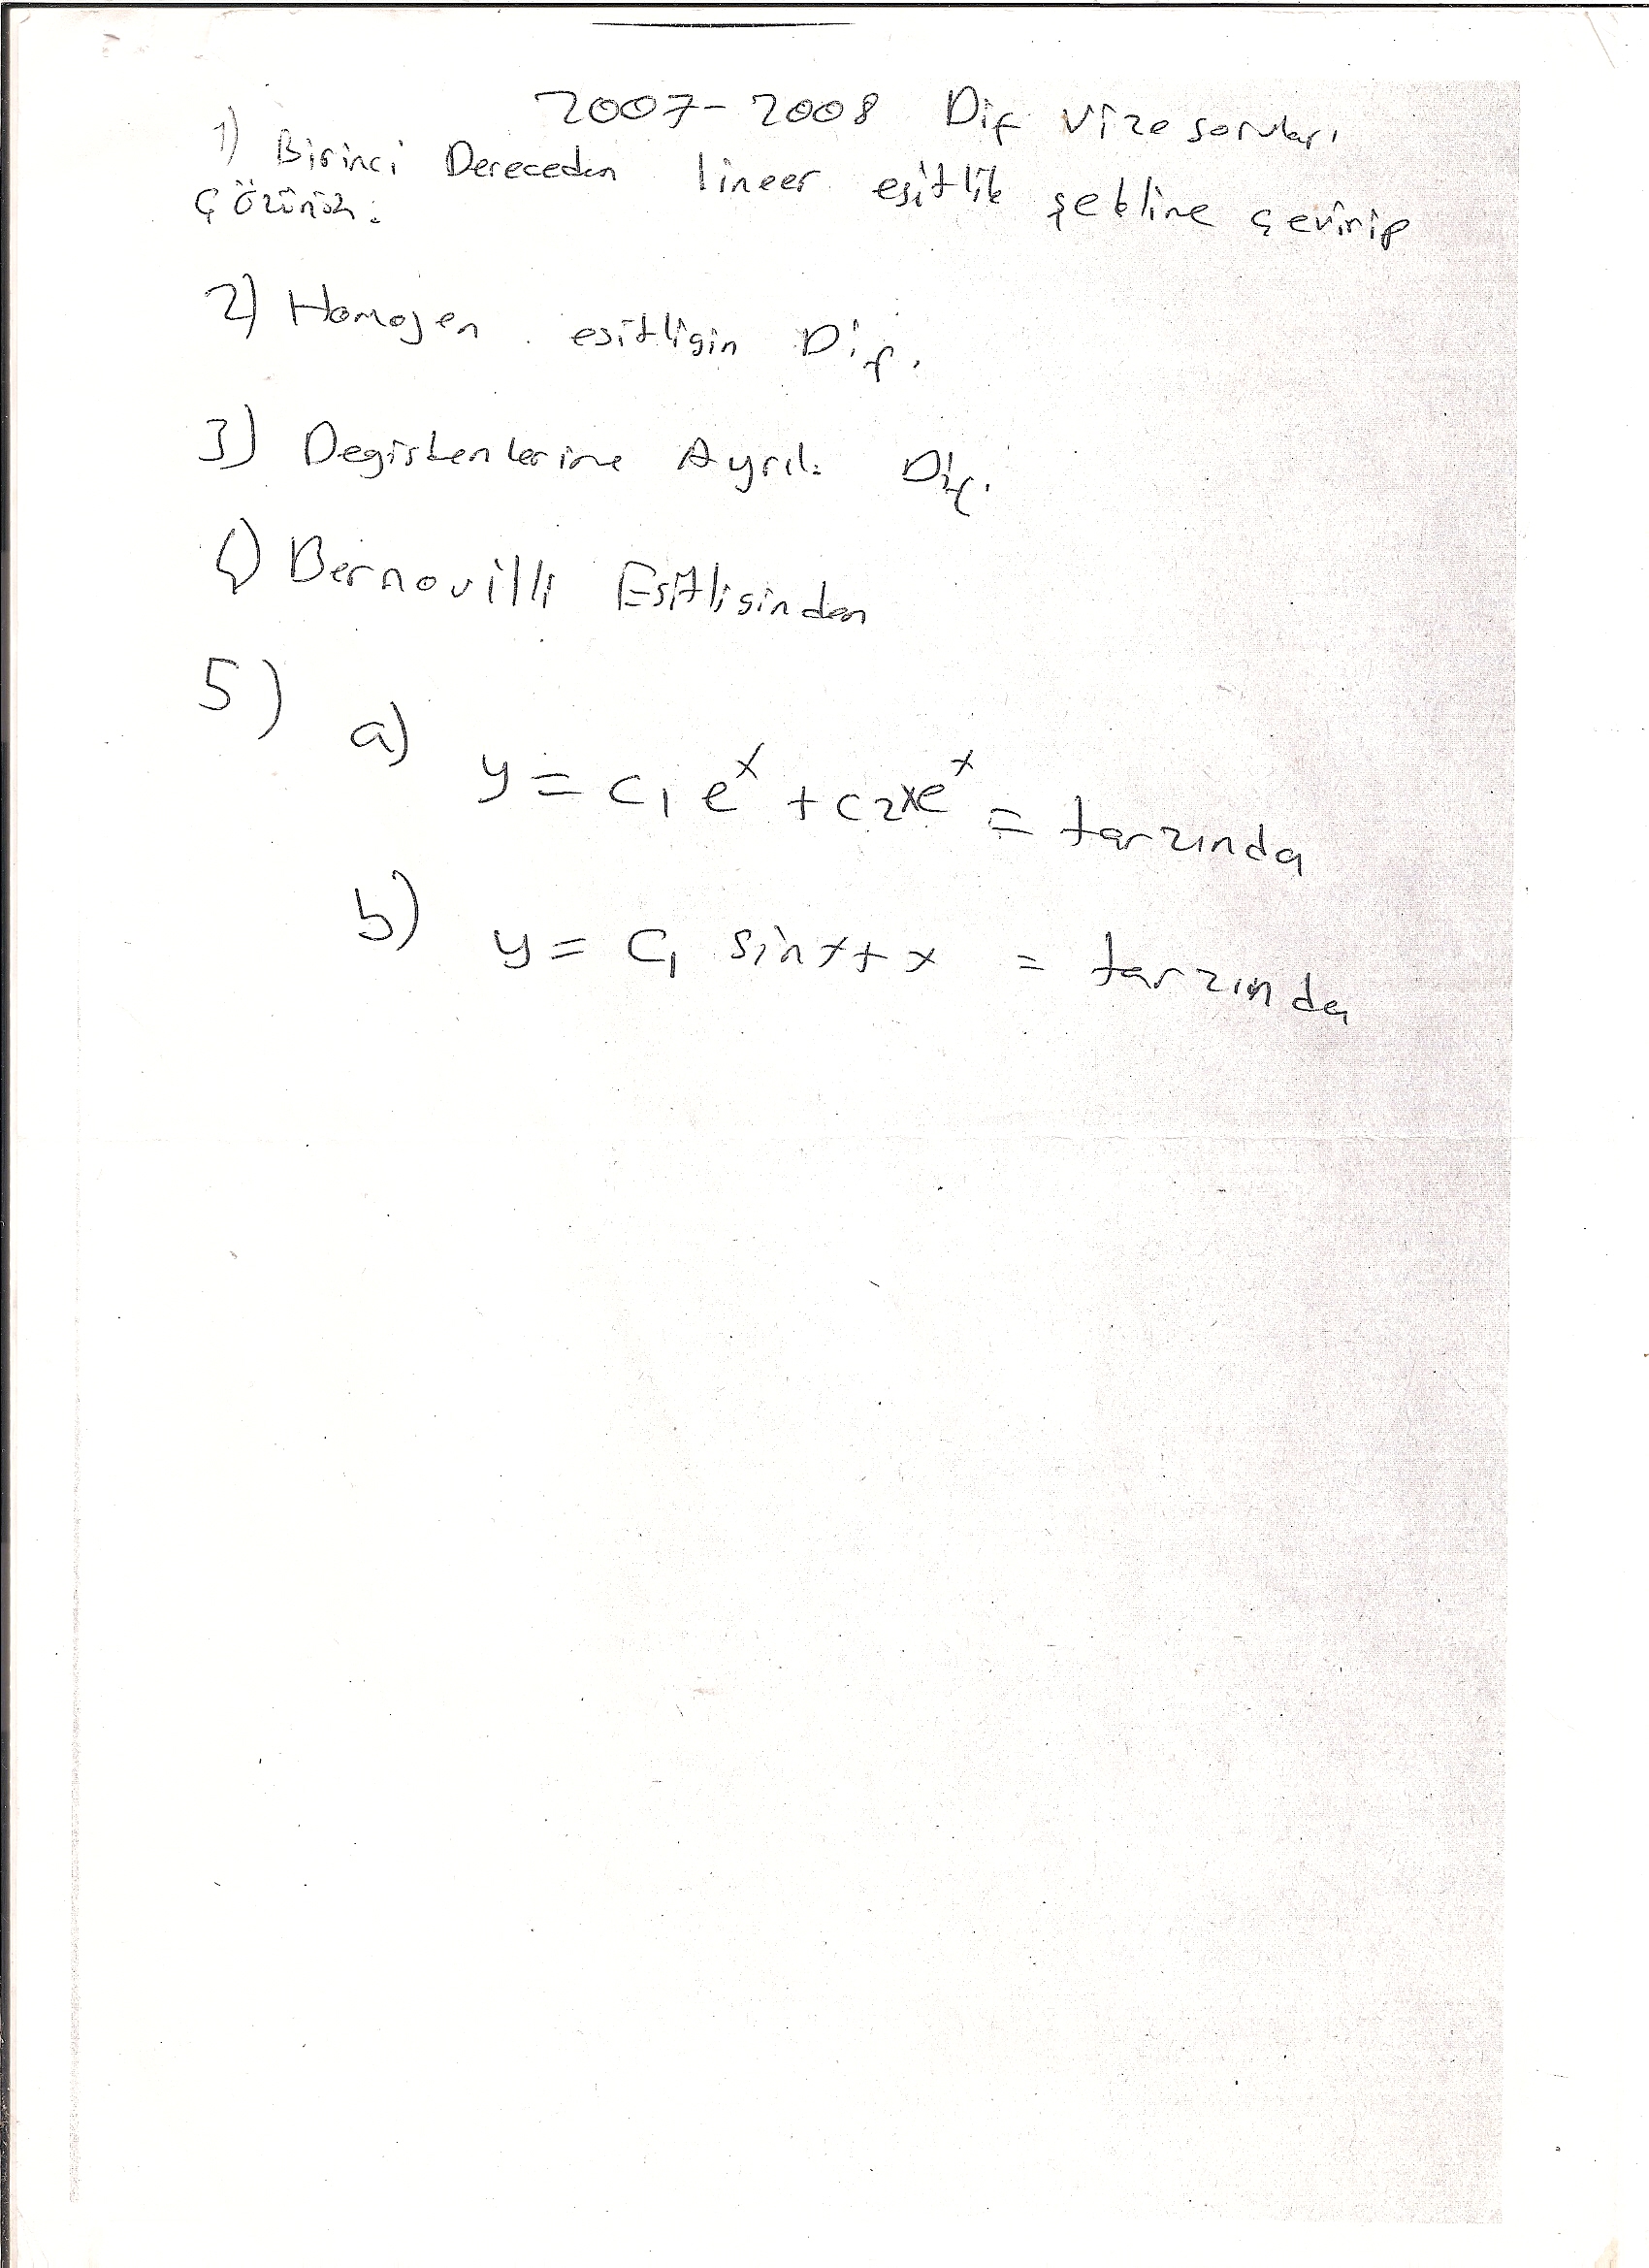 2007-2008 Dif Vize soruları
1) Birinci Dereceden lineer eşitlik şekline çevirip
çözünüz.
2) Homojen esitligin Dif.
3) Degiskenlerine Ayrılı Dif.
4) Bernovilli Esitliginden
5)
a) y = c1 e^x + c2xe^x = tarzında
b) y = C1 sinx + x = tarzında